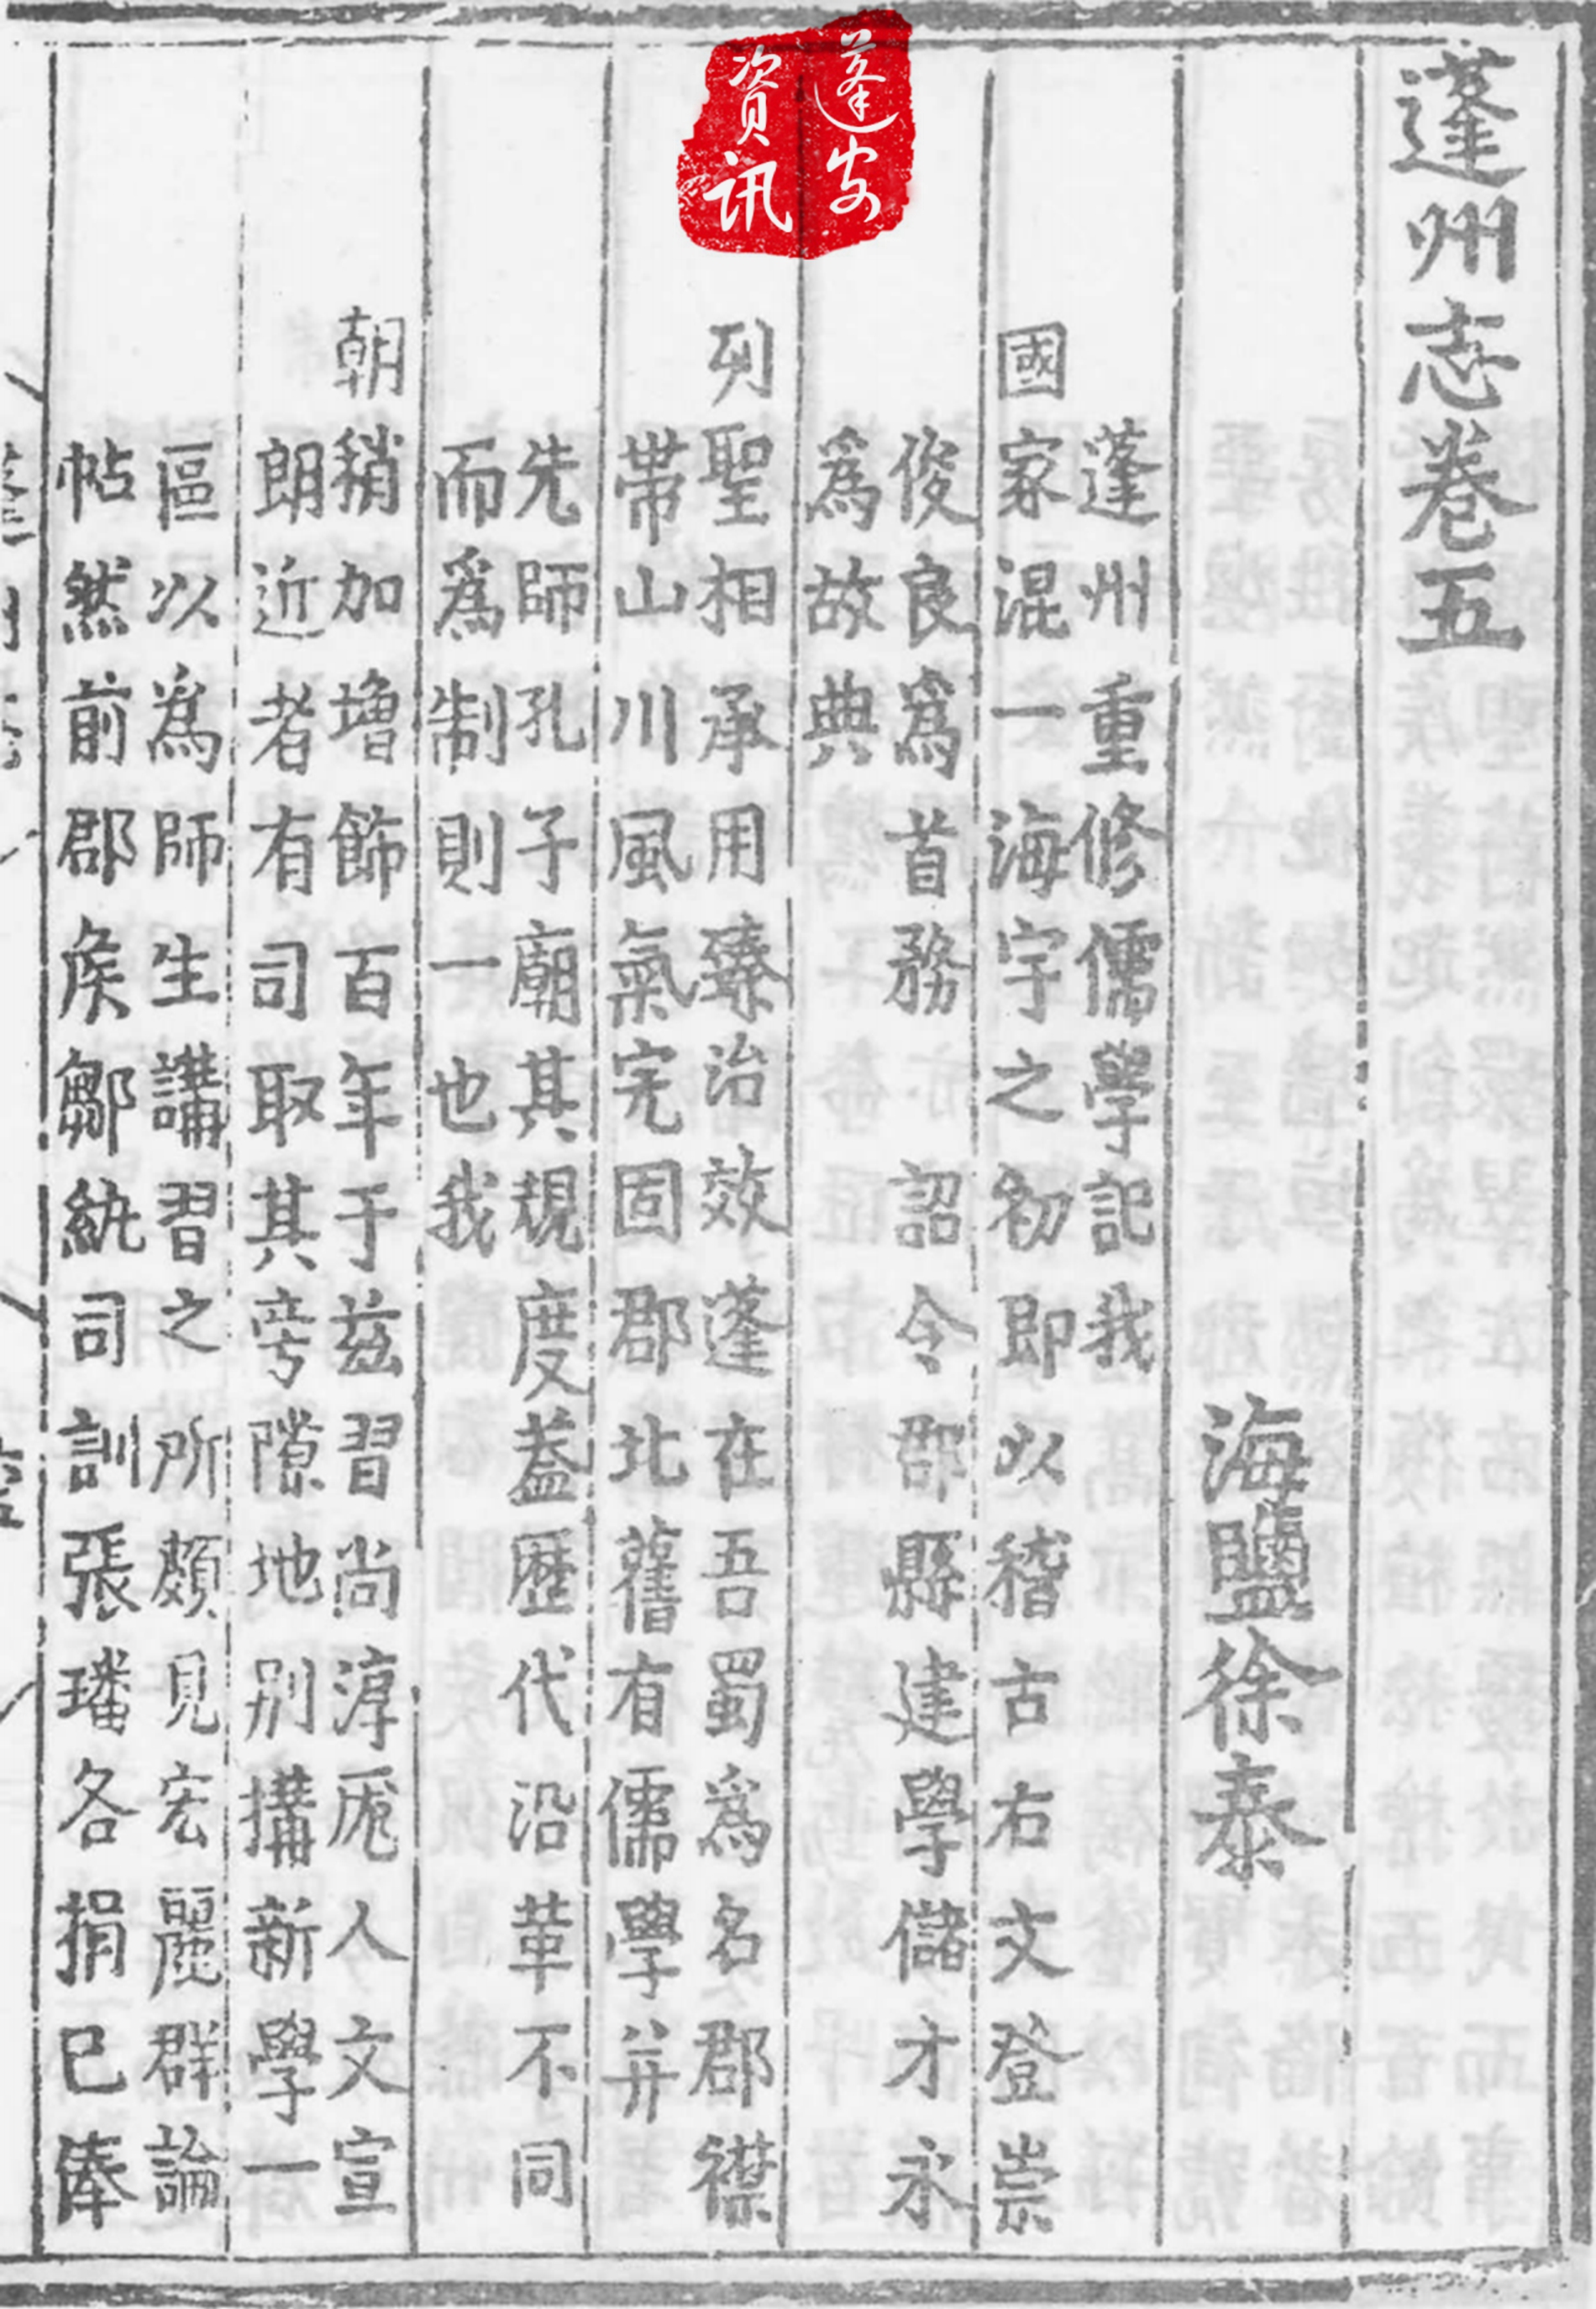 蓬州志卷五
海鹽徐泰
蓬州重修儒學記我
國家混一海宇之初即以稽古右文登崇
俊良爲首務 詔令郡縣建學儲才永
爲故典
列聖相承用臻治效蓬在吾蜀爲名郡襟
帶山川風氣完固郡北舊有儒學并
先師孔子廟其規度蓋歷代沿革不同
而爲制則一也我
朝稍加增飾百年于兹習尚淳厖人文宣
朗近者有司取其旁隙地别搆新學一
區以爲師生講習之所頗見宏麗群論
帖然前郡矦鄒紞司訓張璠各捐已俸
蓬安
資訊